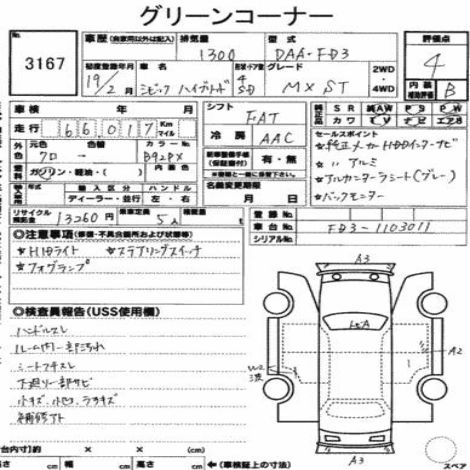 グリーンコーナー
No. 3167
車歴(自家用以外は記入) 排気量 1300 型式 DAA-FD3
評価点 4
内装 補助評価 B
初度登録年月 19/2月 車名 シビック ハイブリッド 形状・ドア数 4 SD グレード MX ST 2WD・4WD
車検 年 月
シフト FAT
純正品 SR AW PS PW
カワ TV ナビ エアB
走行 66,017 Km マイル
冷房 AAC
外色 元色 クロ 色替 カラーNo. B92PX
新車整備手帳(保証書付) 有・無
セールスポイント
☆純正メーカHDDインターナビ
☆ 〃 アルミ
☆アルカンターラシート(グレー)
☆バックモニター
燃料 ガソリン・軽油・( )
輸入車 年式 年 輸入区分 ディーラー・並行 ハンドル 左・右
名義変更期限 月 日
リサイクル預託金 13260円 乗車定員 5人 積載量
登録No.
車台No. FD3-1103011
シリアルNo.
◎注意事項(修復・不具合箇所および状態等)
☆HIDライト ☆ステアリングスイッチ
☆フォグランプ
◎検査員報告(USS使用欄)
ハンドルスレ
ルーム内一部汚れ
シートコゲスレ
下廻り一部サビ
小キズ、小凹、ラチキズ
各補修アト
A3
トビA
W2
A2
A3
スペア
台内寸) 約 × × cm
高さ cm 幅 cm 高さ cm (車検証上の寸法)